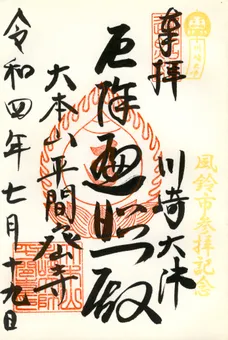 奉拝
川崎大師
厄除遍照殿
大本山平間寺
令和四年七月十九日
風鈴市参拝記念